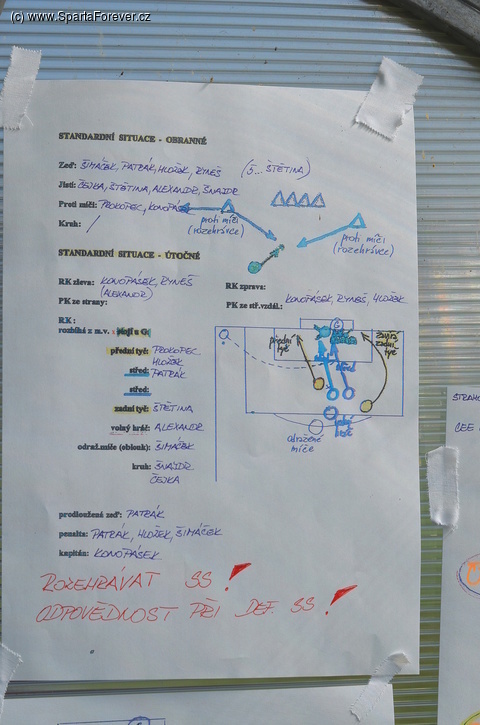 (c) www.SpartaForever.cz
STANDARDNÍ SITUACE - OBRANNÉ
Zeď: ŠIMÁČEK, PATRÁK, HLOŽEK, RYNEŠ (5... ŠTĚTINA)
Jistí: ČEJKA, ŠTĚTINA, ALEXANDR, ŠNAJDR
Proti míči: PROKOPEC, KONOPÁSEK
Kruh: /
proti míči
(rozehrávce)
proti míči
(rozehrávce)
STANDARDNÍ SITUACE - ÚTOČNÉ
RK zleva: KONOPÁSEK, RYNEŠ
(ALEXANDR)
RK zprava:
PK ze strany:
PK ze stř.vzdál.: KONOPÁSEK, RYNEŠ, HLOŽEK
RK :
rozbíhá z m.v. -
přední tyč: PROKOPEC
HLOŽEK
střed: PATRÁK
střed:
zadní tyč: ŠTĚTINA
volný hráč: ALEXANDR
odraž.míče (oblouk): ŠIMÁČEK
kruh: ŠNAJDR
ČEJKA
přední
tyč
G
střed
zavírá
zadní
tyč
volný
hráč
odražené
míče
prodloužená zeď: PATRÁK
penalta: PATRÁK, HLOŽEK, ŠIMÁČEK
kapitán: KONOPÁSEK
ROZEHRÁVAT SS!
ODPOVĚDNOST PŘI DEF. SS!
CEE